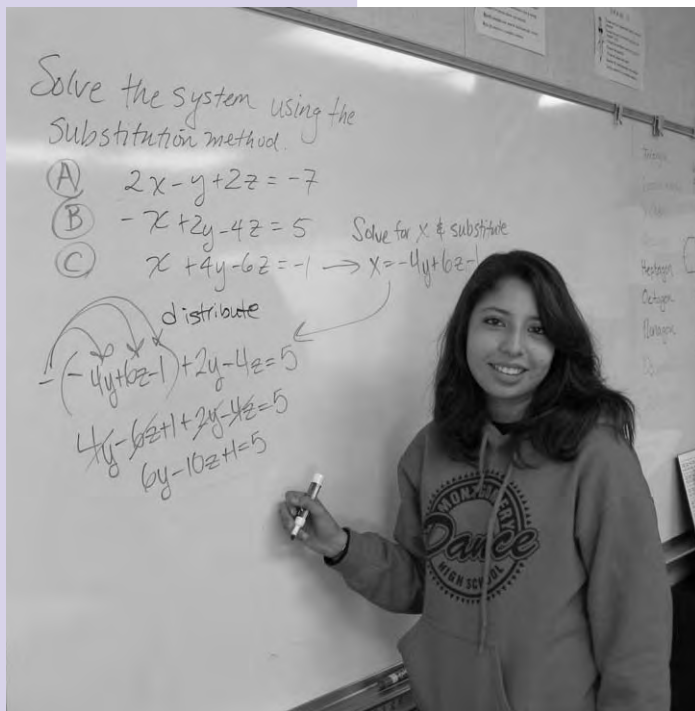 Solve the system using the
substitution method.
A 2x-y+2z=-7
B -x+2y-4z=5
C x+4y-6z=-1 → x=-4y+6z-1
Solve for x & substitute
distribute
-(-4y+6z-1)+2y-4z=5
4y-6z+1+2y-4z=5
6y-10z+1=5
Heptagon
Octagon
Nonagon
MONTGOMERY
Dance
HIGH SCHOOL